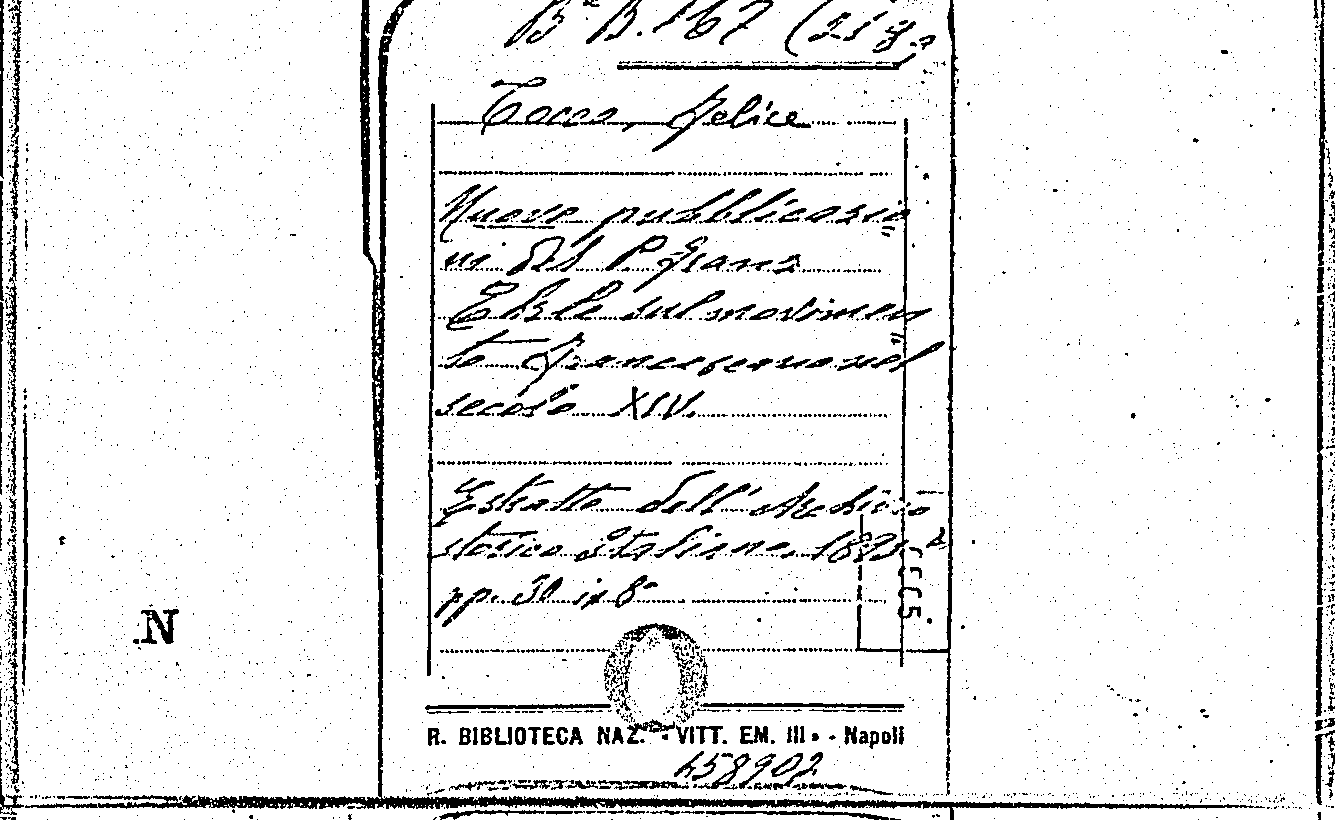 Bª B. 167 (213
Tocco, Felice
Nuove pubblicazio
ni del P. Franz
Ehrle sul movimen
to francescano nel
secolo XIV.
Estratto dell'Archivio
storico Italiano,
pp. 30 in 8º
N
R. BIBLIOTECA NAZ. - VITT. EM. III - Napoli
658902